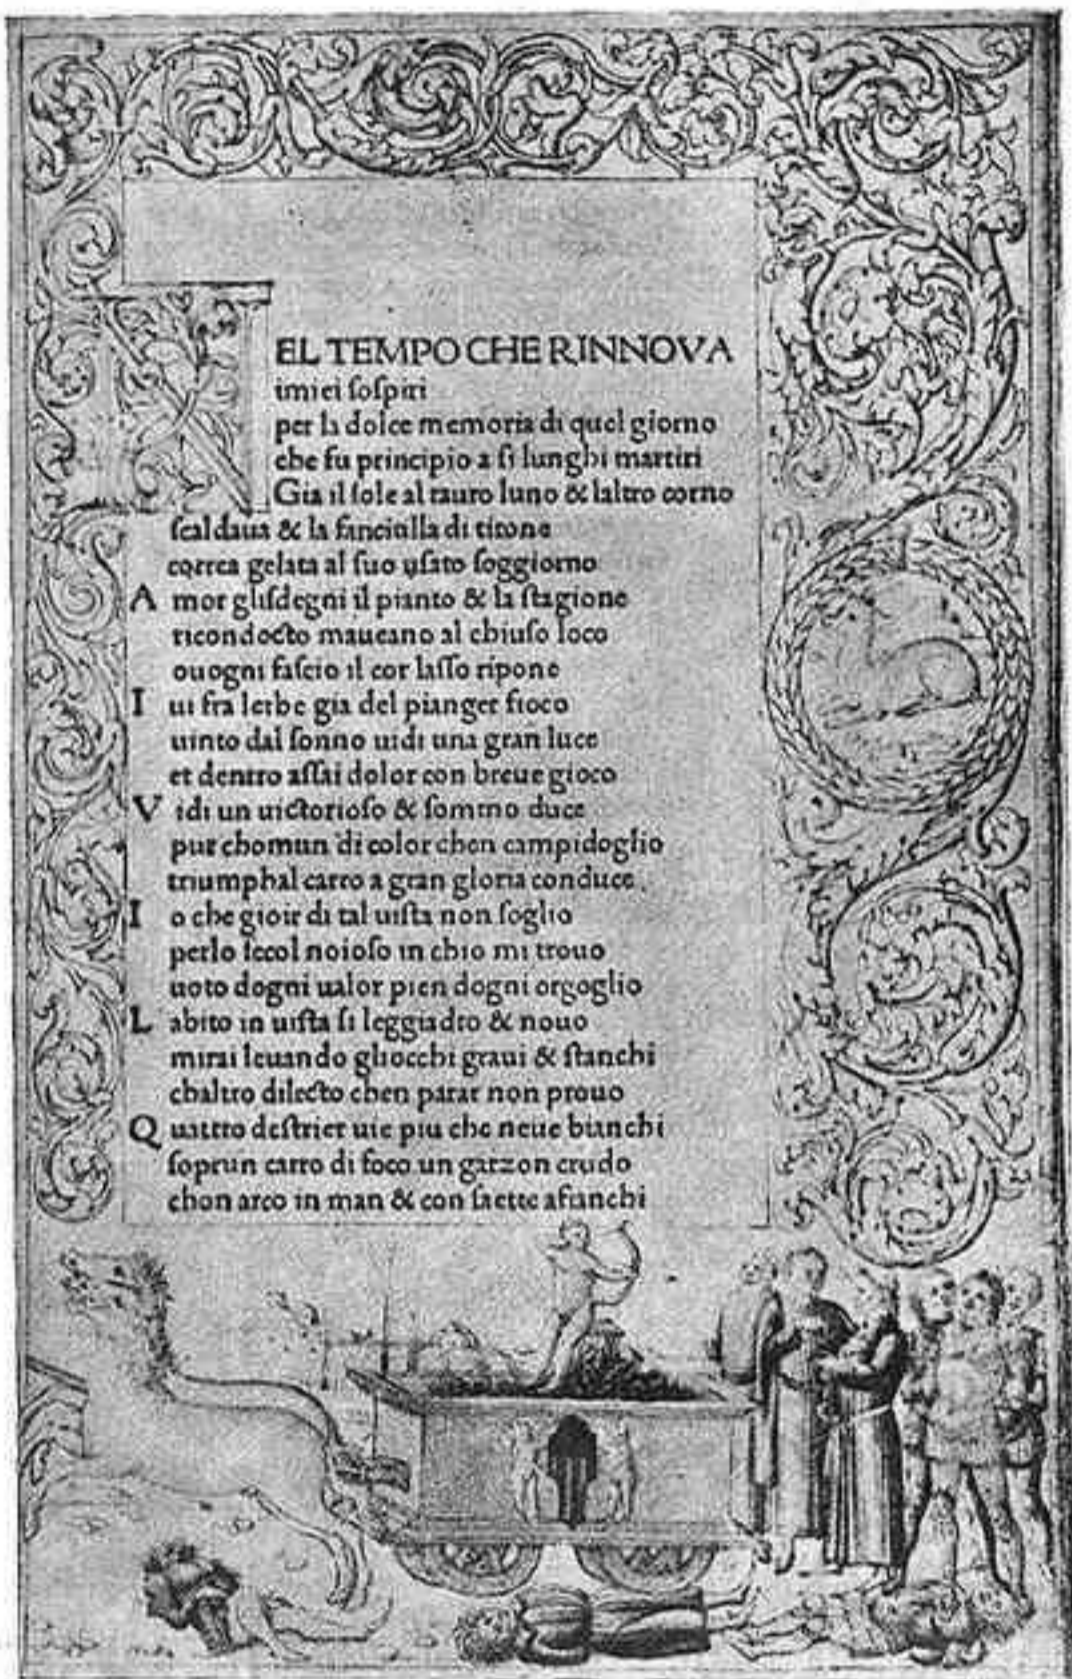 NEL TEMPO CHE RINNOVA
imiei ſoſpiri
per la dolce memoria di quel giorno
che fu principio a ſi lunghi martiri
Gia il ſole al tauro luno & laltro corno
ſcaldaua & la fanciulla di titone
correa gelata al ſuo uſato ſoggiorno
A mor gliſdegni il pianto & la ſtagione
ricondocto maueano al chiuſo loco
ouogni faſcio il cor laſſo ripone
I ui fra lerbe gia del pianger fioco
uinto dal ſonno uidi una gran luce
et dentro aſſai dolor con breue gioco
V idi un uictorioſo & ſommo duce
pur chomun di color chen campidoglio
triumphal carro a gran gloria conduce
I o che gioir di tal uiſta non ſoglio
perlo ſecol noioſo in chio mi trouo
uoto dogni ualor pien dogni orgoglio
L abito in uiſta ſi leggiadro & nouo
mirai leuando gliocchi graui & ſtanchi
chaltro dilecto chen parar non prouo
Q uattro deſtrier uie piu che neue bianchi
ſoprun carro di foco un garzon crudo
chon arco in man & con ſaette afianchi